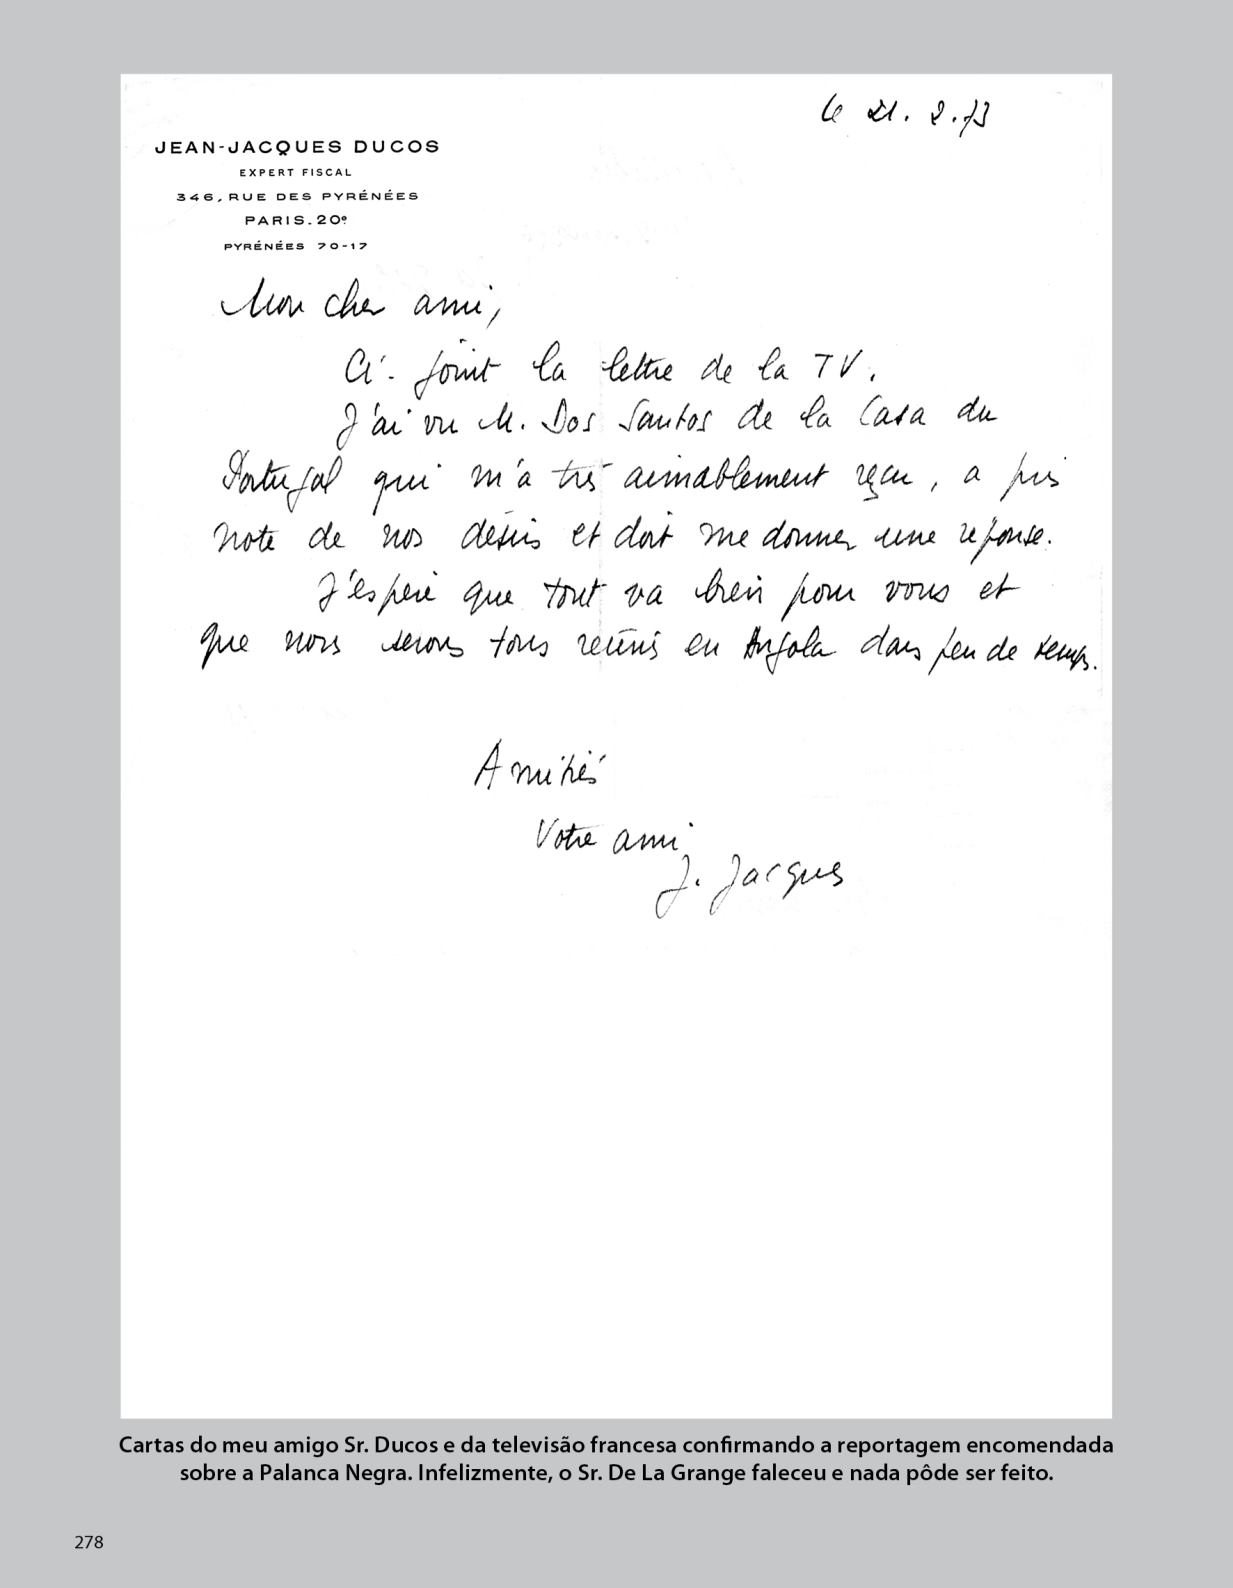 le 21. 2. 73
JEAN-JACQUES DUCOS
EXPERT FISCAL
346, RUE DES PYRÉNÉES
PARIS. 20e
PYRÉNÉES 70-17
Mon cher ami,
Ci-joint la lettre de la TV.
J'ai vu M. Dos Santos de la Casa du
Portugal qui m'a très aimablement reçu, a pris
note de nos désirs et doit me donner une réponse.
J'espère que tout va bien pour vous et
que nous serons tous réunis en Angola dans peu de temps.
Amitiés
Votre ami
J. Jacques
Cartas do meu amigo Sr. Ducos e da televisão francesa confirmando a reportagem encomendada
sobre a Palanca Negra. Infelizmente, o Sr. De La Grange faleceu e nada pôde ser feito.
278